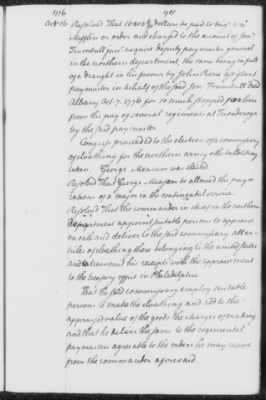 1776
Oct 16
Resolved That 16808 dollars be paid to brigr Genl
Mifflin or order and charged to the account of Jonn
Trumbull junr esquire deputy paymaster general
in the northern department, the same being in full
of a draught in his favour by John Pierce assistant
paymaster in behalf of the said Jonn Trumbull dated
Albany Octr 7. 1776 for so much stopped from him
from the pay of several regiments at Ticonderoga
by the said paymaster
Congress proceeded to the election of a commissary
of cloathing for the northern army & the ballots being
taken, George Measam was elected.
Resolved That George Measam be allowed the pay &
rations of a major in the continental service
Resolved That the commander in chief in the northern
department appoint suitable persons to appraise
on oath and deliver to the said commissary all ar-
ticles of cloathing there belonging to the united states
and transmit his receipts with the appraisement
to the treasury office in Philadelphia
That the said commissary employ suitable
persons to make the cloathing and add to the
appraised value of the goods the charges of making
and that he deliver the same to the regimental
paymasters agreeable to the orders he may receive
from the commander aforesaid